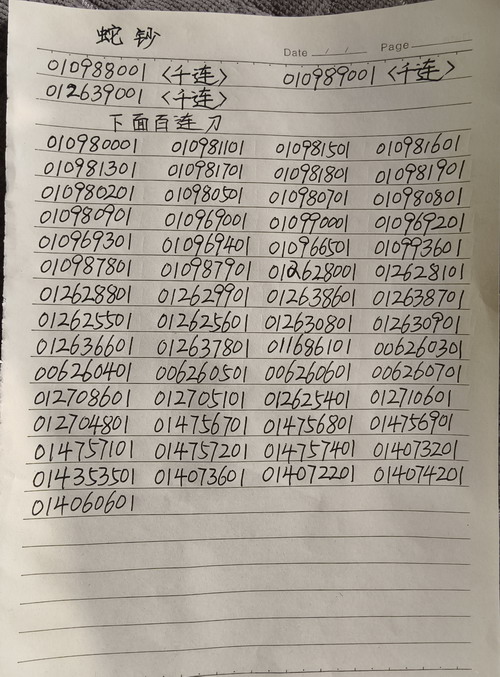 蛇钞
Date / / Page
010988001 〈千连〉 010989001〈千连〉
012639001 〈千连〉
下面百连刀
010980001 010981101 010981501 010981601
010981301 010981701 010981801 010981901
010980201 010980501 010980701 010980801
010980901 010969001 010990001 010969201
010969301 010969401 010966501 010993601
010987801 010987901 012628001 012628101
012628801 012629901 012638601 012638701
012625501 012625601 012630801 012630901
012636601 012637801 011686101 006260301
006260401 006260501 006260601 006260701
012708601 012705101 012625401 012710601
012704801 014756701 014756801 014756901
014757101 014757201 014757401 014073201
014353501 014073601 014072201 014074201
014060601